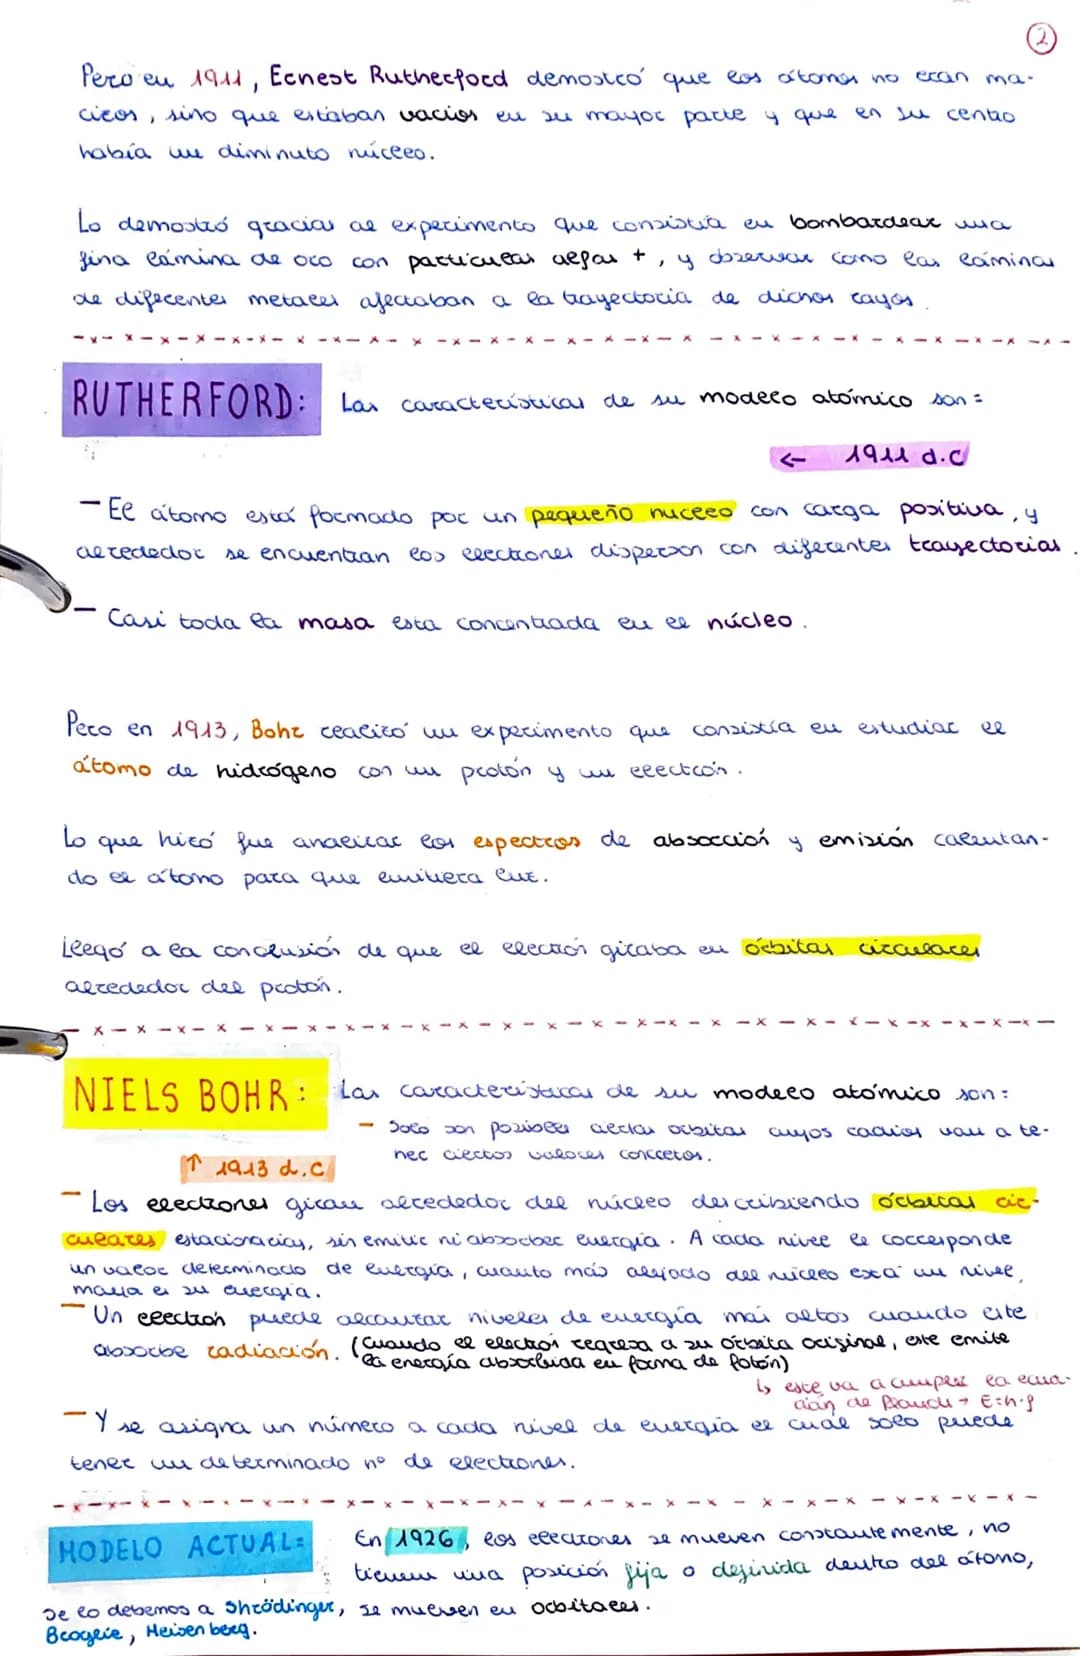 2
Pero en 1911, Ernest Rutherford demostró que los átomos no eran ma-
cicos, sino que estaban vacíos en su mayor parte y que en su centro
había un diminuto núcleo.
Lo demostró gracias al experimento que consistía en bombardear una
fina lámina de oro con partículas alfas +, y observar como las láminas
de diferentes metales afectaban a la trayectoria de dichos rayos.
RUTHERFORD: Las características de su modelo atómico son:
← 1911 d.C
- El átomo está formado por un pequeño nucleo con carga positiva, y
alrededor se encuentran los electrones disperson con diferentes trayectorias.
- Casi toda la masa esta concentrada en el núcleo.
Pero en 1913, Bohr realizó un experimento que consistía en estudiar el
átomo de hidrógeno con un protón y un electrón.
Lo que hizó fue analizar los espectros de absorción y emisión calentan-
do el átomo para que emitiera luz.
Llegó a la conclusión de que el electrón giraba en órbitas circulares
alrededor del protón.
NIELS BOHR: Las características de su modelo atómico son:
- Solo son posibles ciertas orbitas cuyos radios van a te-
ner ciertos valores concretos.
↑ 1913 d.C
- Los electrones giran alrededor del núcleo describiendo órbitas cir-
culares estacionarias, sin emitir ni absorber energía. A cada nivel le corresponde
un valor determinado de energía, cuanto más alejado del núcleo está un nivel,
maya es su energía.
- Un electrón puede alcanzar niveles de energía más altos cuando este
absorbe radiación. (Cuando el electrón regresa a su órbita original, este emite
la energía absorbida en forma de fotón)
↳ este va a cumplir la ecua-
ción de Planck → E=h·f
- Y se asigna un número a cada nivel de energía el cual solo puede
tener un determinado nº de electrones.
MODELO ACTUAL: En 1926, los electrones se mueven constantemente, no
tienen una posición fija o definida dentro del átomo,
Se lo debemos a Shrödinger, se mueven en orbitales.
Broglie, Heisenberg.